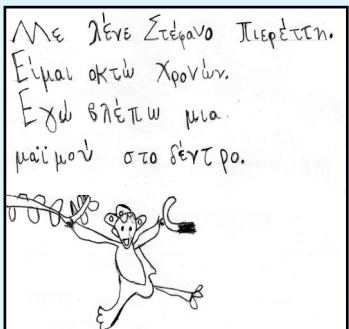 Με λένε Στέφανο Πιερέττη.
Είμαι οκτώ χρονών.
Εγώ βλέπω μια
μαϊμού στο δέντρο.